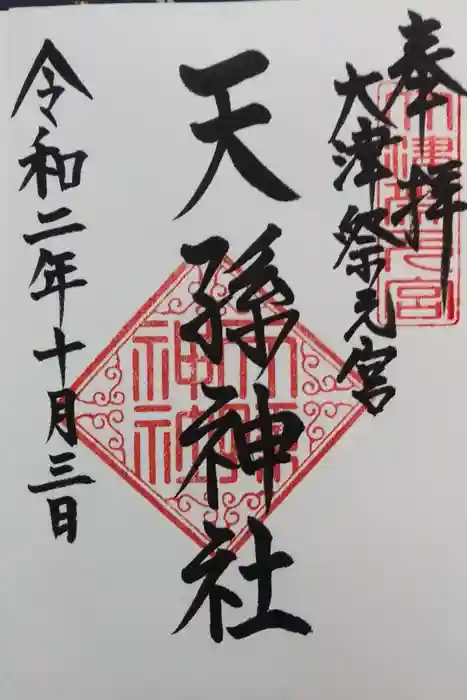 奉拝
大津祭元宮
天孫神社
令和二年十月三日
大津祭元宮
天孫神社